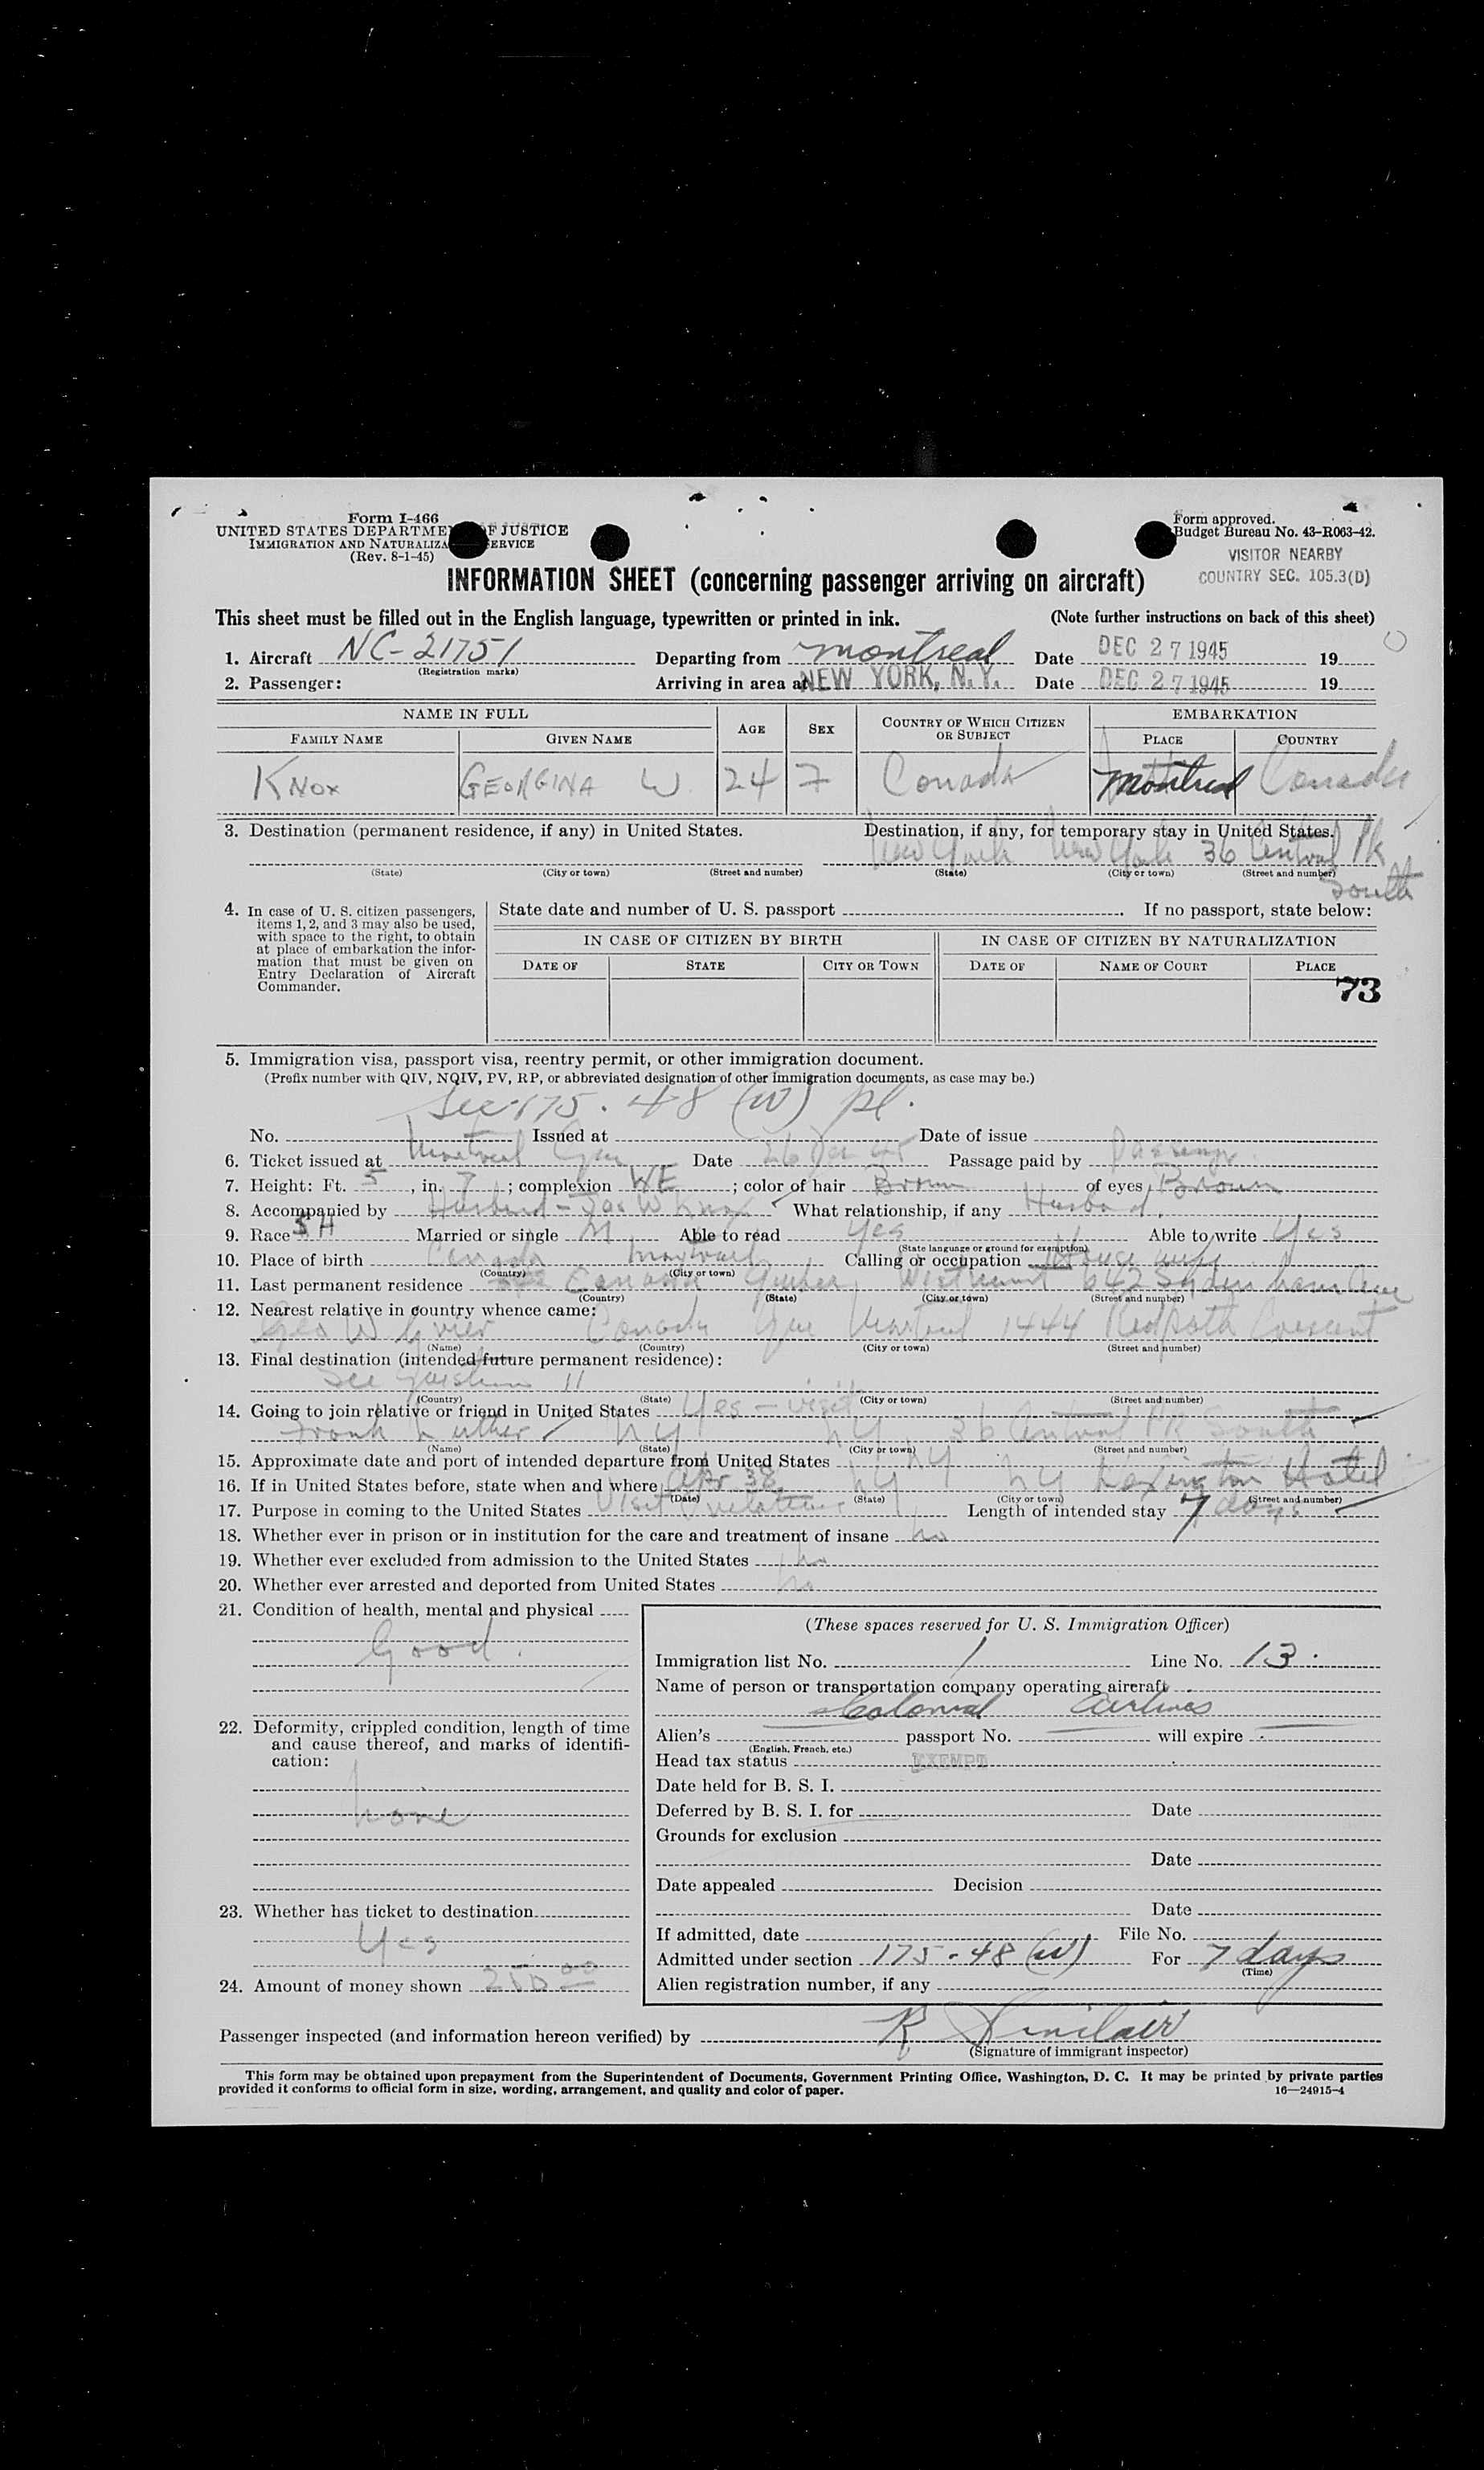 Form I-466
UNITED STATES DEPARTMENT OF JUSTICE
IMMIGRATION AND NATURALIZATION SERVICE
(Rev. 8-1-45)
Form approved.
Budget Bureau No. 43-R063-42.
VISITOR NEARBY
COUNTRY SEC. 105.3(D)
INFORMATION SHEET (concerning passenger arriving on aircraft)
This sheet must be filled out in the English language, typewritten or printed in ink. (Note further instructions on back of this sheet)
1. Aircraft NC-21751 Departing from montreal Date DEC 27 1945 19
(Registration marks)
2. Passenger: Arriving in area at NEW YORK, N.Y. Date DEC 27 1945 19
NAME IN FULL AGE SEX COUNTRY OF WHICH CITIZEN OR SUBJECT EMBARKATION
FAMILY NAME GIVEN NAME PLACE COUNTRY
KNOX GEORGINA W 24 7 Canada montreal Canada
3. Destination (permanent residence, if any) in United States. Destination, if any, for temporary stay in United States.
New York New York 36 Central Pk South
(State) (City or town) (Street and number) (State) (City or town) (Street and number)
4. In case of U. S. citizen passengers, items 1, 2, and 3 may also be used, with space to the right, to obtain at place of embarkation the information that must be given on Entry Declaration of Aircraft Commander.
State date and number of U. S. passport . If no passport, state below:
IN CASE OF CITIZEN BY BIRTH IN CASE OF CITIZEN BY NATURALIZATION
DATE OF STATE CITY OR TOWN DATE OF NAME OF COURT PLACE
73
5. Immigration visa, passport visa, reentry permit, or other immigration document.
(Prefix number with QIV, NQIV, PV, RP, or abbreviated designation of other immigration documents, as case may be.)
Sec 175.48 (W) pl.
No. Issued at Date of issue
6. Ticket issued at Montreal Que Date 26 Dec 45 Passage paid by Passenger
7. Height: Ft. 5, in. 7; complexion WE; color of hair Brown of eyes Brown
8. Accompanied by Husband - Jas W Knox What relationship, if any Husband
9. Race SH Married or single M Able to read Yes Able to write Yes
(State language or ground for exemption)
10. Place of birth Canada Montreal Calling or occupation House wife
(Country) (City or town)
11. Last permanent residence Canada Quebec Westmount 642 Sydenham Ave
(Country) (State) (City or town) (Street and number)
12. Nearest relative in country whence came:
Geo W Canada Que Montreal 1444 Redpath Crescent
(Name) (Country) (City or town) (Street and number)
13. Final destination (intended future permanent residence):
See question 11
(Country) (State) (City or town) (Street and number)
14. Going to join relative or friend in United States Yes - visit
Frank Luther NY NY 36 Central Pk South
(Name) (State) (City or town) (Street and number)
15. Approximate date and port of intended departure from United States NY
16. If in United States before, state when and where Apr 38 NY NY Lexington Hotel
(Date) (State) (City or town) (Street and number)
17. Purpose in coming to the United States Visit relatives Length of intended stay 7 days
18. Whether ever in prison or in institution for the care and treatment of insane no
19. Whether ever excluded from admission to the United States no
20. Whether ever arrested and deported from United States no
21. Condition of health, mental and physical
Good.
22. Deformity, crippled condition, length of time and cause thereof, and marks of identification:
none
23. Whether has ticket to destination
Yes
24. Amount of money shown 250.00
(These spaces reserved for U. S. Immigration Officer)
Immigration list No. 1 Line No. 13.
Name of person or transportation company operating aircraft
Colonial Airlines
Alien's passport No. will expire
(English, French, etc.)
Head tax status EXEMPT
Date held for B. S. I.
Deferred by B. S. I. for Date
Grounds for exclusion
Date
Date appealed Decision
Date
If admitted, date File No.
Admitted under section 175-48 (W) For 7 days
(Time)
Alien registration number, if any
Passenger inspected (and information hereon verified) by R Sinclair
(Signature of immigrant inspector)
This form may be obtained upon prepayment from the Superintendent of Documents, Government Printing Office, Washington, D. C. It may be printed by private parties
provided it conforms to official form in size, wording, arrangement, and quality and color of paper. 16—24915-4